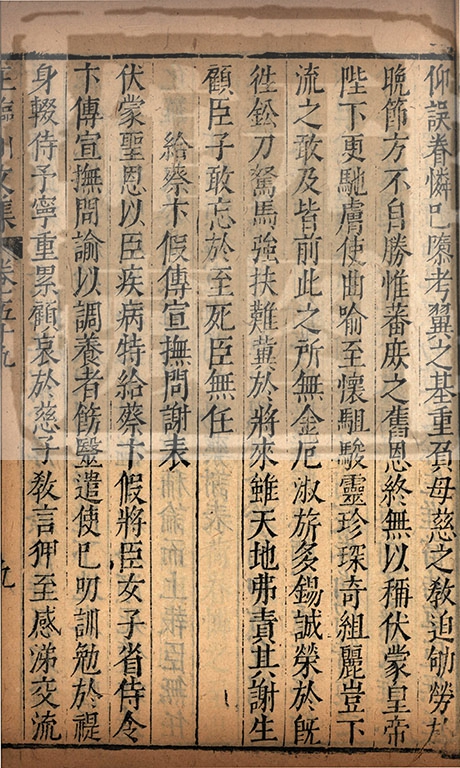 仰誤眷憐已隳考翼之基重負母慈之教迫劬勞於
晚節方不自勝惟蕃庶之舊恩終無以稱伏蒙皇帝
陛下更馳膚使曲喻至懷駔駿靈珍琛奇組麗豈下
流之敢及皆前此之所無金厄淑旂多錫誠榮於旣
徃鈆刀駑馬強扶難冀於將來雖天地弗責其謝生
顧臣子敢忘於至死臣無任
給蔡卞假傳宣撫問謝表
伏蒙聖恩以臣疾病特給蔡卞假將臣女子省侍令
卞傳宣撫問諭以調養者飭毉遣使已叨訓勉於禔
身輟侍予寧重累顧哀於慈子敎言狎至感涕交流
王臨川文集 卷五十九 九